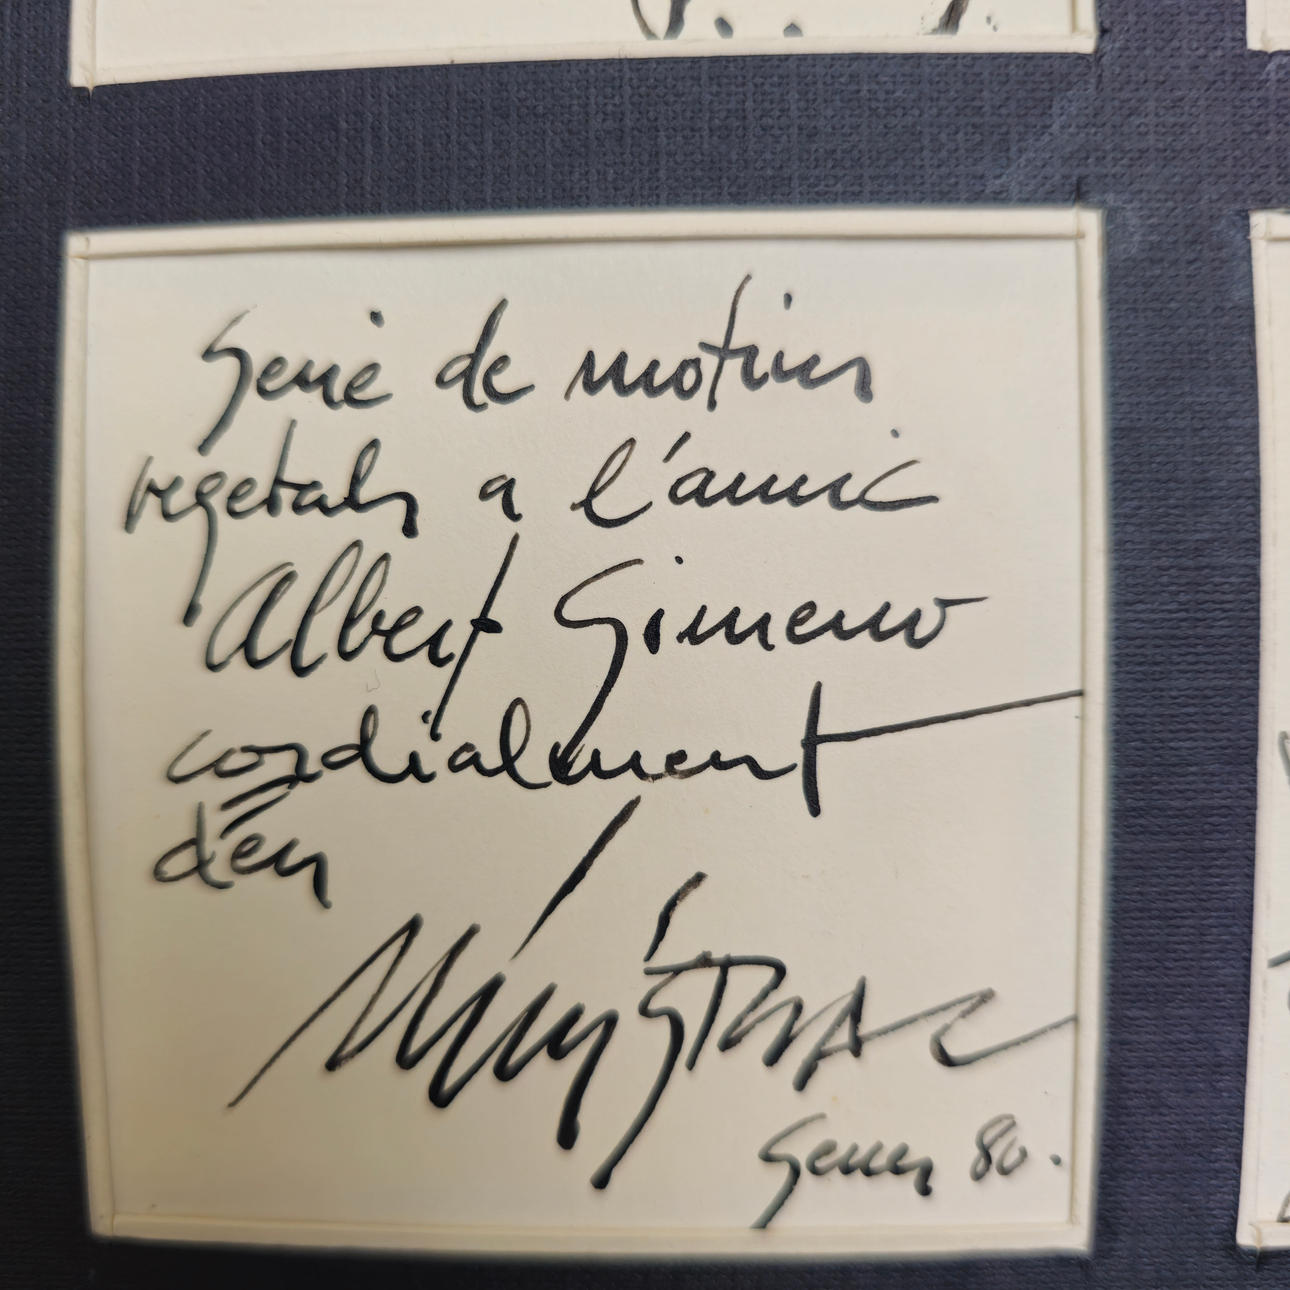 Serie de motius
vegetals a l'amic
Albert Gimeno
cordialment
d'en
Gener 80.